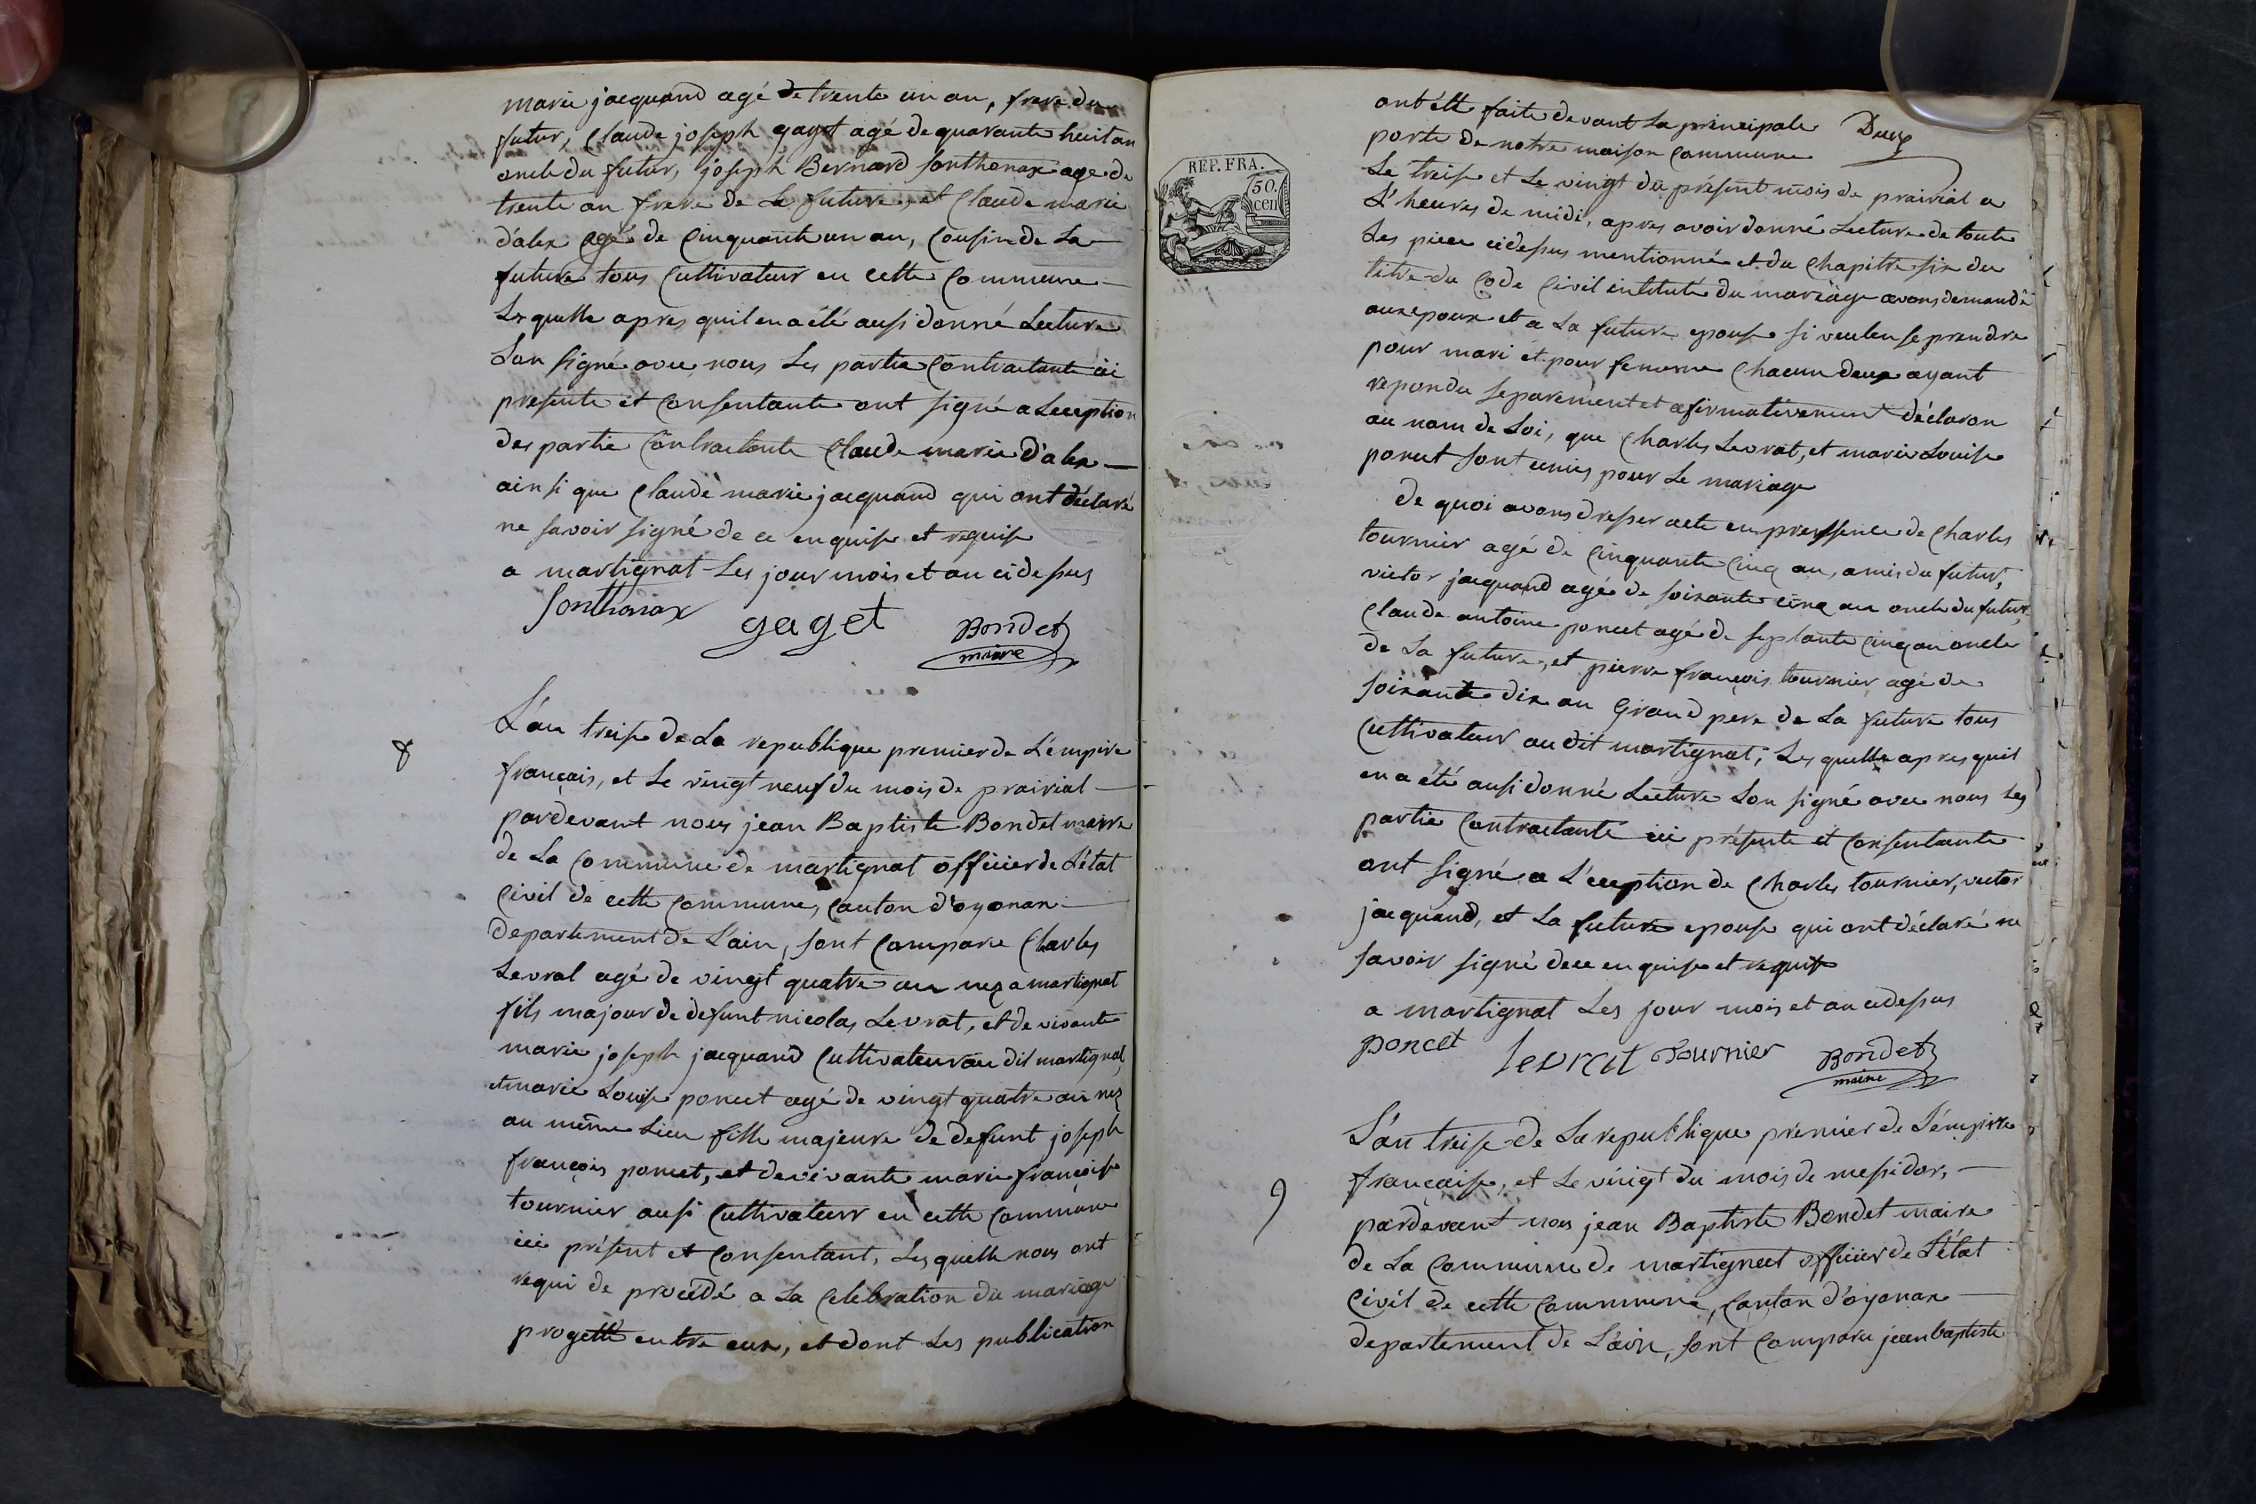 marie jacquand agé de trente un an, frere du
futur, Claude joseph gayet agé de quarante huit an
oncle du futur, joseph Bernard sonthonax age de
trente an frere de la future, et Claude marie
d'alex agé de Cinquante un an, Cousin de La
future tous Cultivateur en cette Commune
Lesquelle apres quil en a été ausi donné Lecture
Son signé avec nous Les partie Contractante ici
presente et Consentante ont signé a Leception
des partie Contractante Claude marie d'alex
ainsi que Claude marie jacquand qui ont déclaré
ne savoir signé de ce enquise et requise
a martignat Les jour mois et an cidesus
Sonthonax gaget Bondet
maire
8
L'an treise de La republique premier de L'empire
français, et Le vingt neuf du mois de prairial
pardevant nous jean Baptiste Bondet maire
de La Commune de martignat officier de L'état
Civil de cette Commune, Canton d'oyonax
departement de L'ain, sont Compare Charles
Levrat agé de vingt quatre an nez a martignat
fils majour de defunt nicolas Levrat, et de vivante
marie joseph jacquand Cultivateur au dit martignat,
et marie Louise poncet agé de vingt quatre an nez
au même Lieu fille majeure de defunt joseph
françois poncet, et de vivante marie françoise
tournier ausi Cultivateur en cette Commune
ici présent et Consentant, Lesquelle nous ont
requi de procédé a La Célébration du mariage
progetté entre eux, et dont Les publication
REP. FRA.
50.
cen
ont été faite devant La principale Deux
porte de notre maison Commune
Le treise et Le vingt du présent mois de prairial a
L'heures de midi, apres avoir donné Lecture de toute
Les piece cidesus mentionné et du Chapitre six du
titre du Code Civil intitulé du mariage avons demandé
aux epoux et a La future epouse si veulen se prendre
pour mari et pour femme Chacun deux ayant
repondu separement et afirmativement déclaron
au nom de Loi, que Charles Levrat, et marie Louise
poncet sont unis pour Le mariage
De quoi avons dresser acte en presence de Charles
tournier agé de Cinquante Cinq an, amis du futur,
victor jacquand agé de soixante cinq an oncle du futur,
Claude antoine poncet agé de septante Cinq an oncle
de La future, et pierre françois tournier agé de
soixante dix an Grand pere de La future tous
Cultivateur au dit martignat, Lesquelle apres quil
en a été ausi donné Lecture Son signé avec nous Les
partie Contractante ici présente et Consentante
ont signé a L'eception de Charles tournier, victor
jacquand, et La future epouse qui ont déclaré ne
savoir signé de ce enquise et requise
a martignat Les jour mois et an cidesus
poncet levrat Tournier Bondet
maire
9
L'an treise de La republique premier de L'empire
française, et Le vingt du mois de mesidor,
pardevant nous jean Baptiste Bondet maire
de La Commune de martignat officier de L'état
Civil de cette Commune, Canton d'oyonax
departement de L'ain, sont Comparu jean baptiste